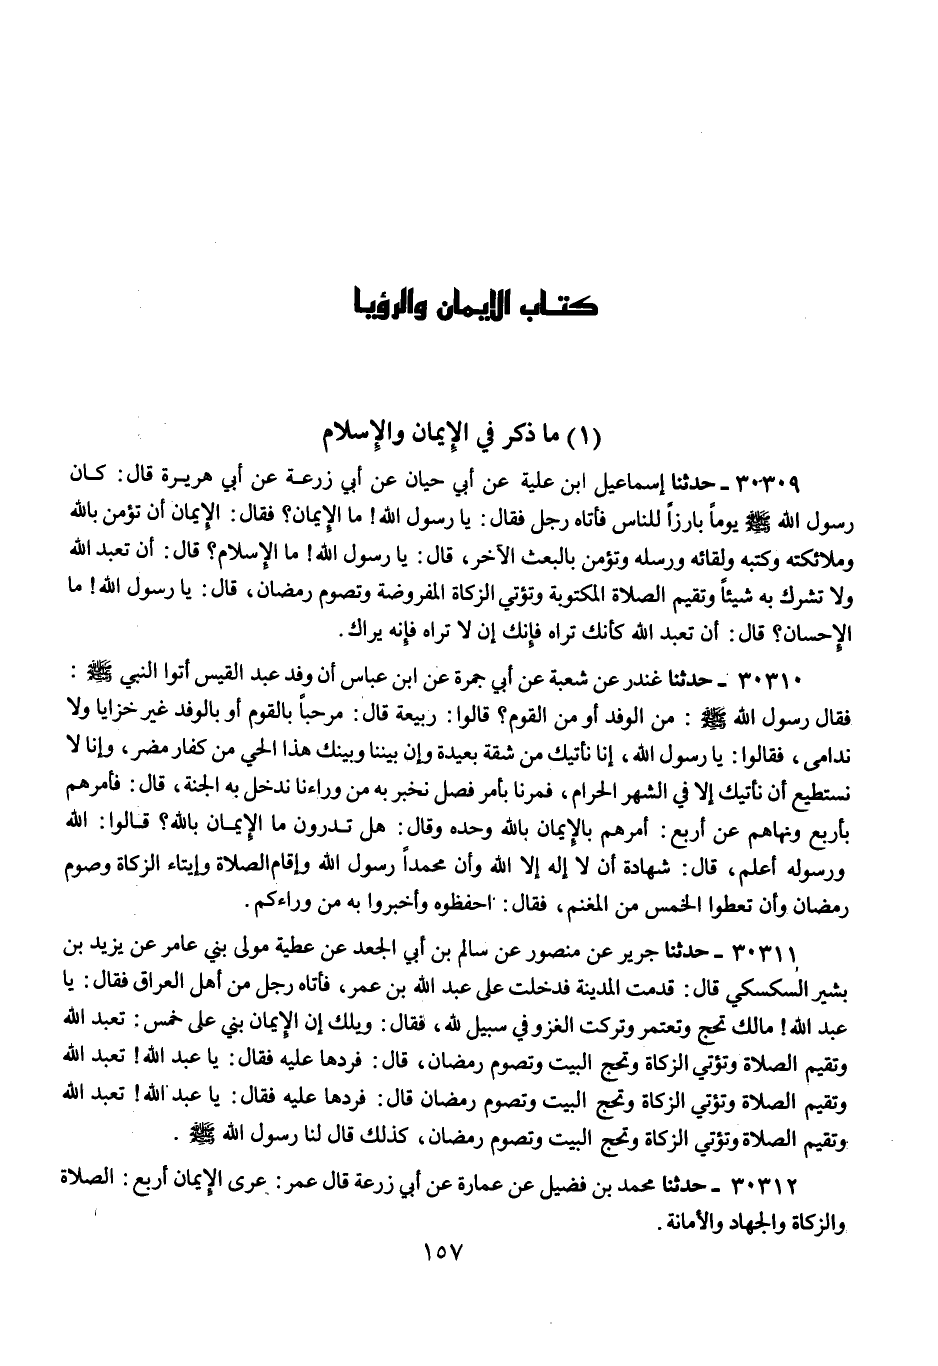 كتاب الإيمان والرؤيا
(١) ما ذكر في الإيمان والإسلام
٣٠٣٠٩ ـ حدثنا إسماعيل ابن علية عن أبي حيان عن أبي زرعة عن أبي هريرة قال: كان
رسول الله ﷺ يوماً بارزاً للناس فأتاه رجل فقال: يا رسول الله! ما الإيمان؟ فقال: الإيمان أن تؤمن بالله
وملائكته وكتبه ولقائه ورسله وتؤمن بالبعث الآخر، قال: يا رسول الله! ما الإسلام؟ قال: أن تعبد الله
ولا تشرك به شيئاً وتقيم الصلاة المكتوبة وتؤتي الزكاة المفروضة وتصوم رمضان، قال: يا رسول الله! ما
الإحسان؟ قال: أن تعبد الله كأنك تراه فإنك إن لا تراه فإنه يراك.
٣٠٣١٠ ـ حدثنا غندر عن شعبة عن أبي جمرة عن ابن عباس أن وفد عبد القيس أتوا النبي ﷺ :
فقال رسول الله ﷺ : من الوفد أو من القوم؟ قالوا: ربيعة قال: مرحباً بالقوم أو بالوفد غير خزايا ولا
ندامى، فقالوا: يا رسول الله، إنا نأتيك من شقة بعيدة وإن بيننا وبينك هذا الحي من كفار مضر، وإنا لا
نستطيع أن نأتيك إلا في الشهر الحرام، فمرنا بأمر فصل نخبر به من وراءنا ندخل به الجنة، قال: فأمرهم
بأربع ونهاهم عن أربع: أمرهم بالإيمان بالله وحده وقال: هل تدرون ما الإيمان بالله؟ قالوا: الله
ورسوله أعلم، قال: شهادة أن لا إله إلا الله وأن محمداً رسول الله وإقام الصلاة وإيتاء الزكاة وصوم
رمضان وأن تعطوا الخمس من المغنم، فقال: احفظوه وأخبروا به من وراءكم.
٣٠٣١١ ـ حدثنا جرير عن منصور عن سالم بن أبي الجعد عن عطية مولى بني عامر عن يزيد بن
بشير السكسكي قال: قدمت المدينة فدخلت على عبد الله بن عمر، فأتاه رجل من أهل العراق فقال: يا
عبد الله! مالك تحج وتعتمر وتركت الغزو في سبيل لله، فقال: ويلك إن الإيمان بني على خمس: تعبد الله
وتقيم الصلاة وتؤتي الزكاة وتحج البيت وتصوم رمضان، قال: فردها عليه فقال: يا عبد الله! تعبد الله
وتقيم الصلاة وتؤتي الزكاة وتحج البيت وتصوم رمضان قال: فردها عليه فقال: يا عبد الله! تعبد الله
وتقيم الصلاة وتؤتي الزكاة وتحج البيت وتصوم رمضان، كذلك قال لنا رسول الله ﷺ .
٣٠٣١٢ ـ حدثنا محمد بن فضيل عن عمارة عن أبي زرعة قال عمر: عرى الإيمان أربع: الصلاة
والزكاة والجهاد والأمانة.
١٥٧